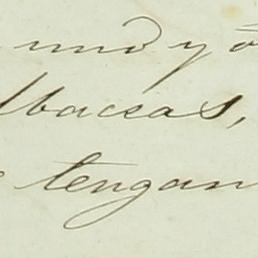 uno y o
lbaceas,
tengan